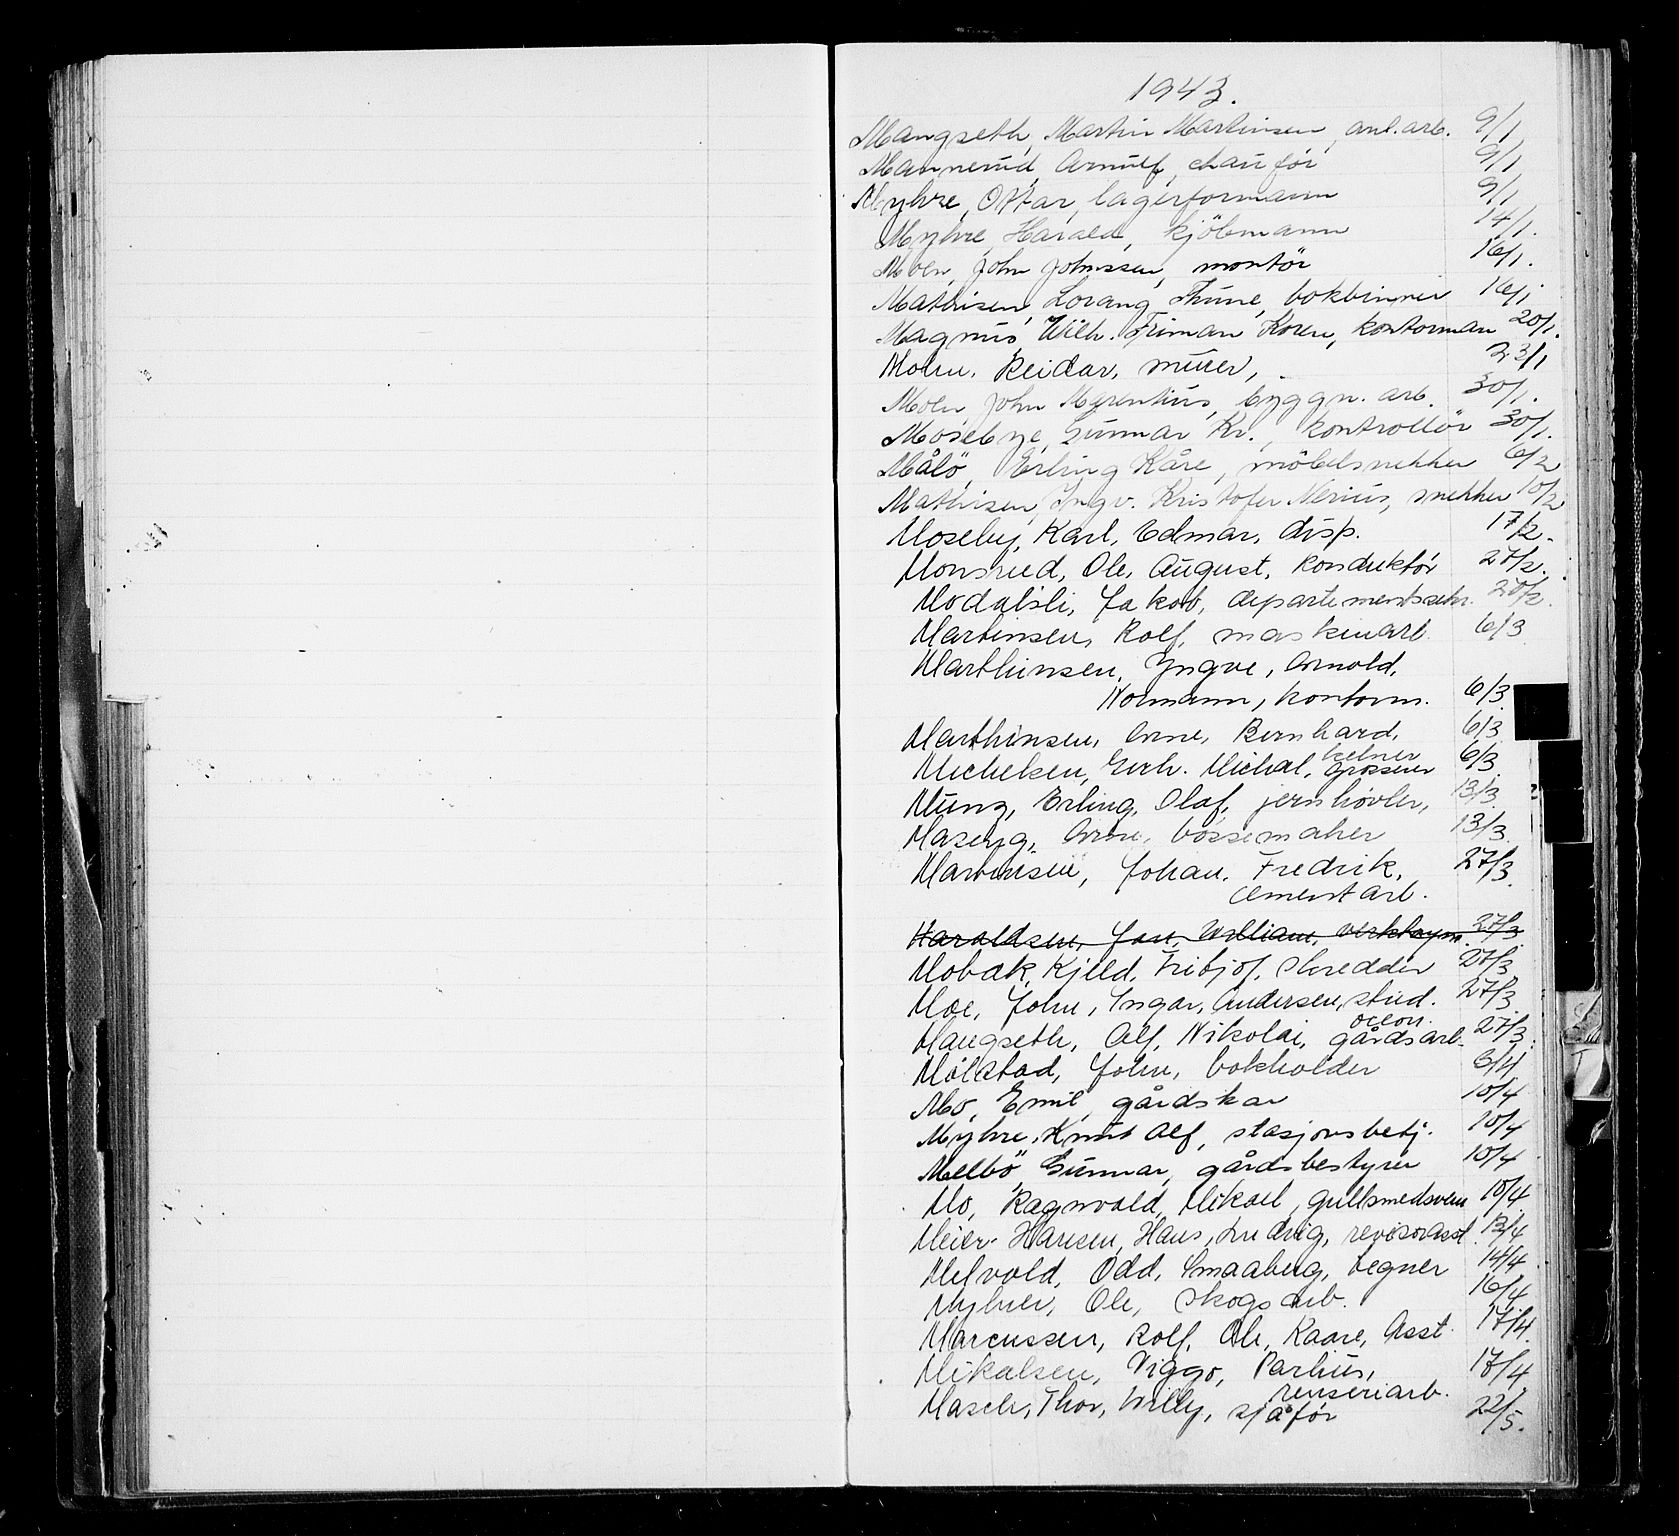 1943.
Mangseth, Martin Martinsen, anl.arb. 9/1
Mannerud, Arnulf, chauför 9/1
Myhre, Ottar, lagerformann 9/1
Myhre, Harald, kjöbmann 14/1.
Moen, John Johnssen, montör 16/1.
Mathisen, Lorang Thune, bokbinner 16/1
Magnus, Wilh. Friman Koren, kontorman 20/1.
Mohn, Reidar, murer, 23/1
Moen, John Marentius, byggn. arb. 30/1.
Mosebye, Gunnar Kr., kontrollör 30/1.
Målö, Erling Kåre, möbelsnekker 6/2
Mathisen, Ingv. Kristofer Nerius, snekker 10/2
Moseby, Karl, Edmar, disp. 17/2.
Monsrud, Ole, August, konduktör 27/2.
Modalsli, Jakob, departementssekr. 27/2.
Martinsen, Rolf, maskinarb. 6/3
Marthinsen, Yngve, Arnold,
Normann, kontorm. 6/3.
Marthinsen, Arne, Bernhard, 6/3
kelner
Michelsen, Gerh. Michal, grosserer 6/3.
Mung, Erling, Olaf, jernhövler, 13/3.
Maseng, Arne, bössemaker 13/3
Martinsen, Johan, Fredrik, 27/3.
cementarb.
Haraldsen, Jan, William, verktøym. 27/3
Mobak, Kjeld, Fritjof, skredder 27/3
Moe, John, Ingar, Andersen, stud. 27/3
oecon.
Mangseth, Alf, Nikolai, gårdsarb. 27/3.
Mölstad, John, bokholder 3/4
Mo, Emil, gårdskar 10/4
Myhre, Knut Alf, stasjonsbetj. 10/4
Melbö, Gunnar, gårdsbestyrer 10/4
Mo, Ragnvald, Mikael, gullsmedsvenn 10/4
Meier-Hansen, Hans, Ludvig, revisorasst. 13/4
Melvold, Odd, Smaaberg, tegner 14/4
Myhrer, Ole, skogsarb. 16/4
Marcussen, Rolf, Ole, Kaare, Asst. 17/4.
Mikalsen, Viggo, Parlius, 17/4
renseriarb.
Masch, Thor, Willy, sjåför 22/5.